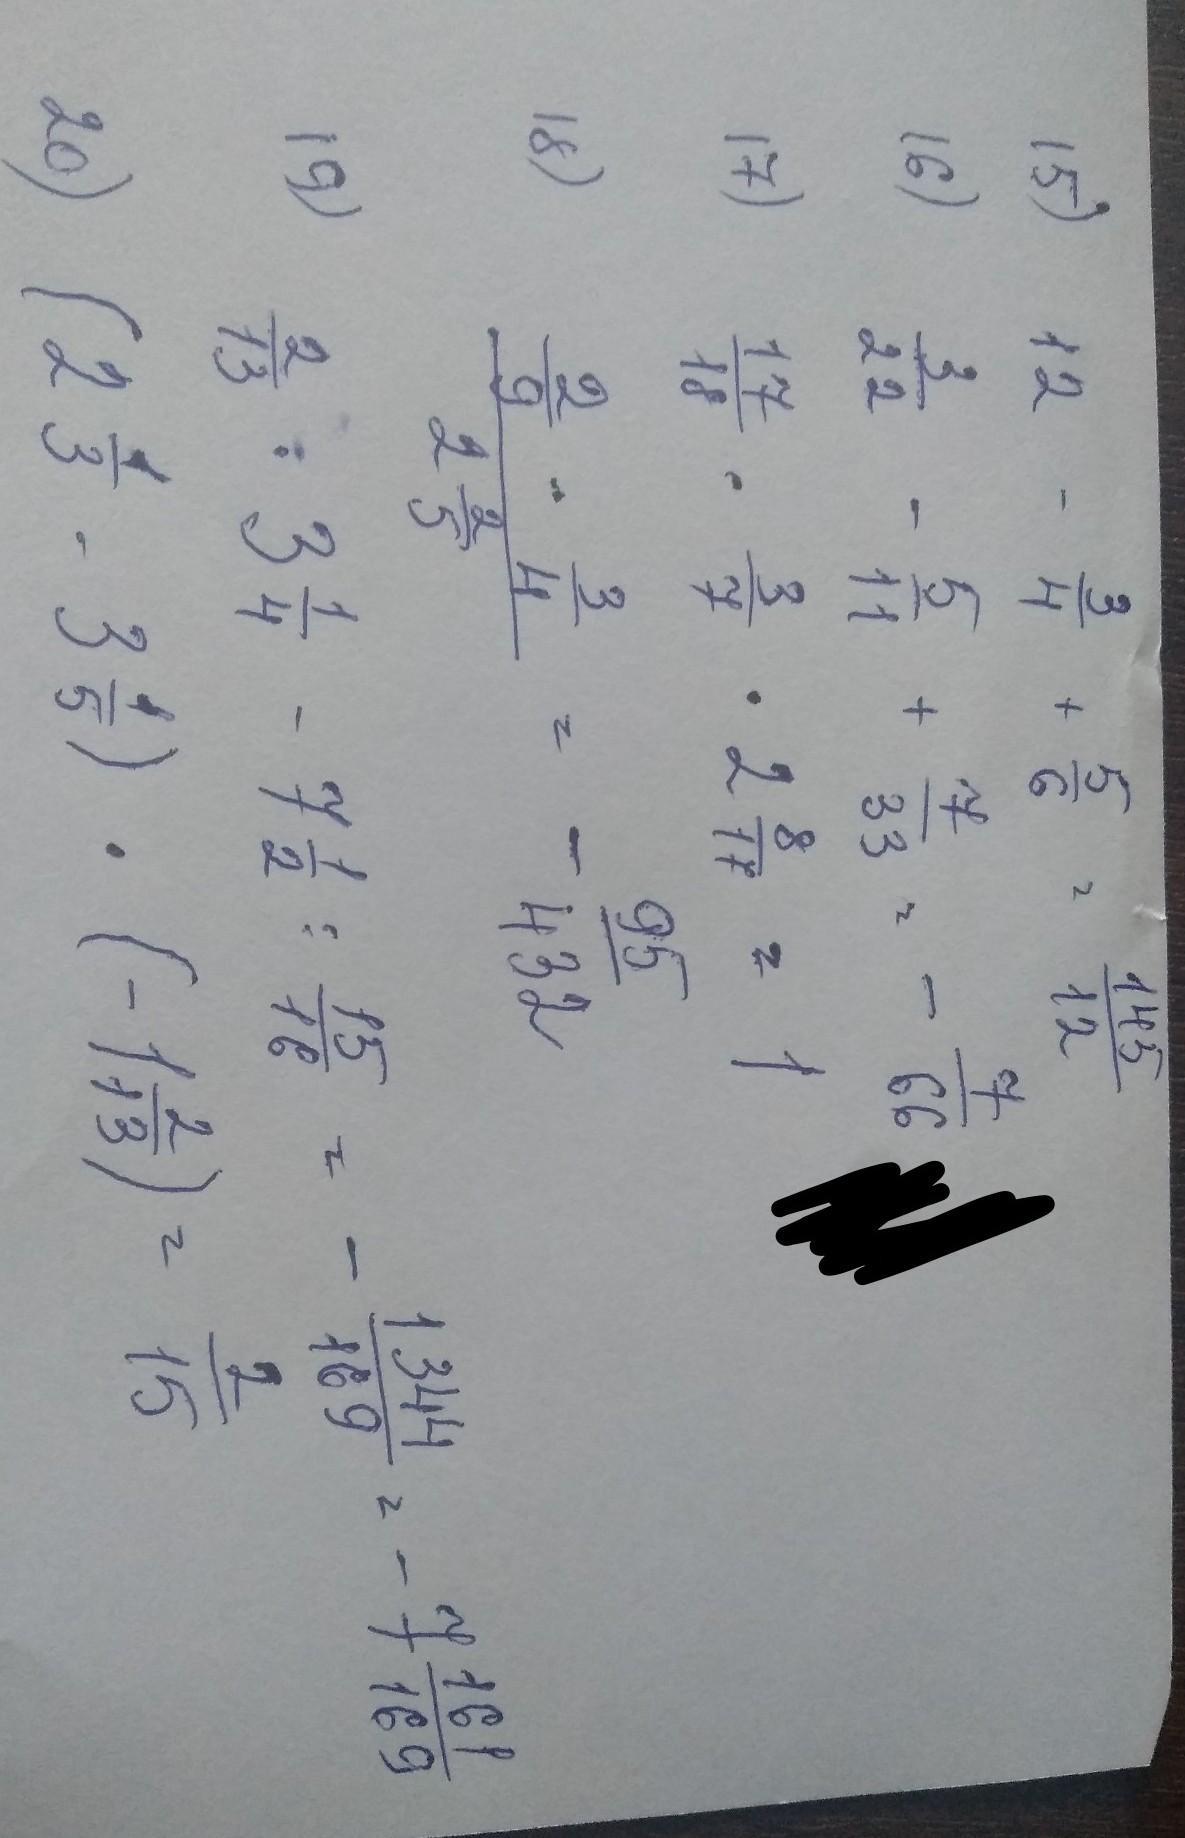 15) 12 - 3/4 + 5/6 = 145/12
16) 3/22 - 5/11 + 7/33 = - 7/66
17) 17/18 · 3/7 · 2 8/17 = 1
18) (2/9 · 3/4) / (2 2/5) = - 95/432
19) 2/13 : 3 1/4 - 7 1/2 : 15/16 = - 1344/169 = - 7 161/169
20) (2 1/3 - 3 1/5) · (-1 2/13) = 2/15